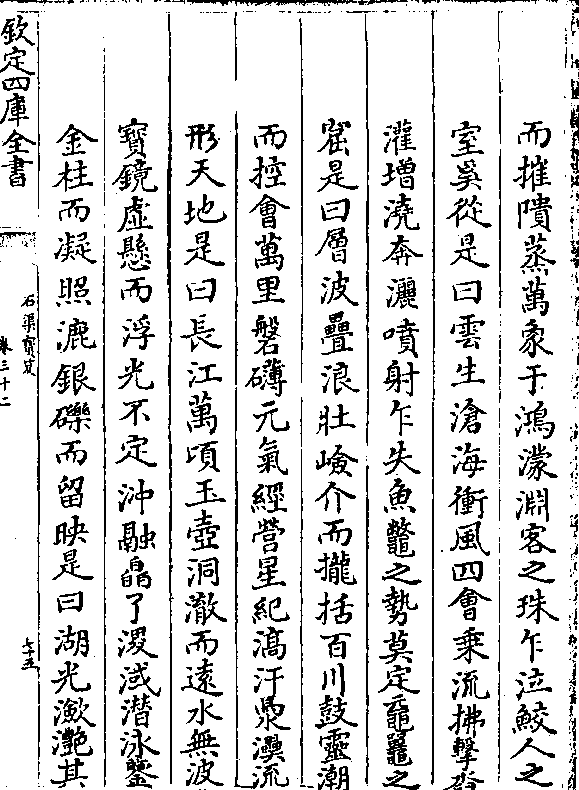 而摧隤蒸萬象于鴻濛淵客之珠乍泣鮫人之
室奚從是曰雲生滄海衝風四會乘流拂擊
灌增澆奔灑噴射乍失魚鼈之勢莫定黿鼉之
窟是曰層波疊浪壯嶮介而攏括百川鼓靈潮
而控會萬里磐礴元氣經營星紀滈汗㶕流
形天地是曰長江萬頃玉壺洞澈而遠水無波
寶鏡虛懸而浮光不定沖融皛了㴔淢潛泳鑒
金柱而凝照漉銀礫而留映是曰湖光瀲灩其
欽定四庫全書
石渠寶笈
卷三十二
七十五